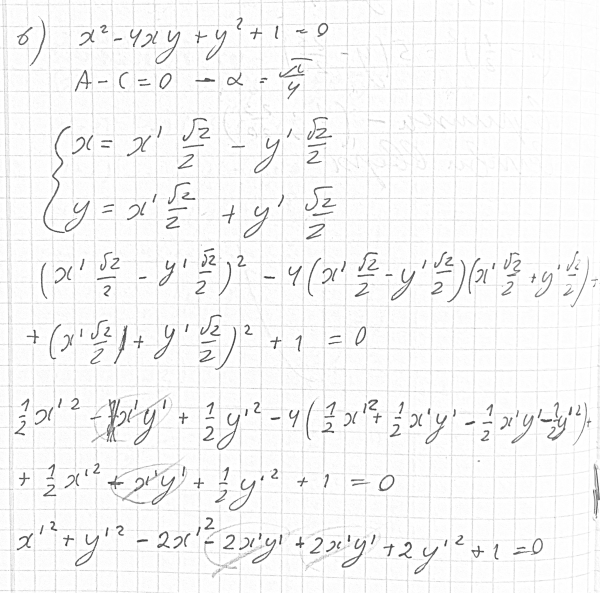 б) x² - 4xy + y² + 1 = 0
A - C = 0 - α = π/4
{ x = x' √2/2 - y' √2/2
y = x' √2/2 + y' √2/2
(x' √2/2 - y' √2/2)² - 4(x' √2/2 - y' √2/2)(x' √2/2 + y' √2/2) +
+ (x' √2/2 + y' √2/2)² + 1 = 0
1/2 x'² - x'y' + 1/2 y'² - 4(1/2 x'² + 1/2 x'y' - 1/2 x'y' - 1/2 y'²) +
+ 1/2 x'² + x'y' + 1/2 y'² + 1 = 0
x'² + y'² - 2x'² - 2x'y' + 2x'y' + 2y'² + 1 = 0